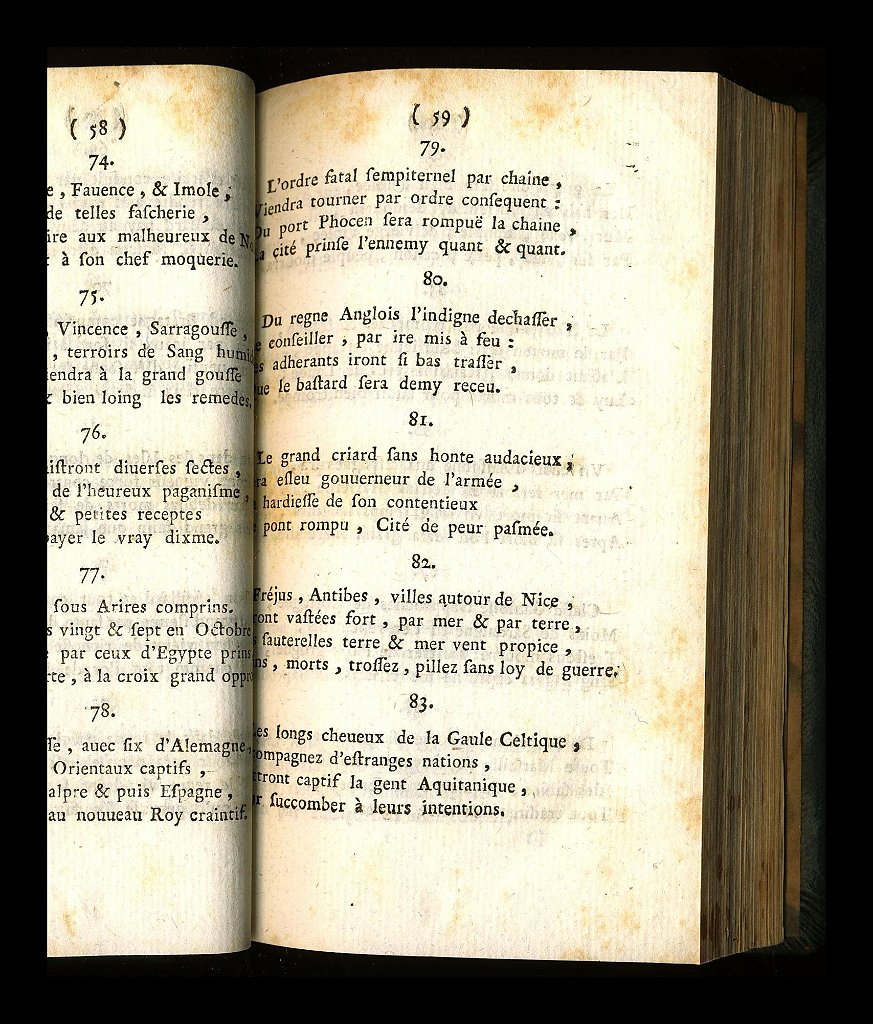 ( 58 )
74.
e , Fauence , & Imole ;
de telles faſcherie ,
ire aux malheureux de No
à ſon chef moquerie.
75.
Vincence , Sarragouſſe ,
, terroirs de Sang humi
endra à la grand gouſſe
bien loing les remedes.
76.
iſtront diuerſes ſectes ,
de l'heureux paganiſme ,
& petites receptes
ayer le vray dixme.
77.
ſous Arires comprins.
s vingt & ſept en Octobre
par ceux d'Egypte prins
rte , à la croix grand oppro
78.
ſſe , auec ſix d'Alemagne ,
Orientaux captifs ,
alpre & puis Eſpagne ,
au nouueau Roy craintif.
( 59 )
79.
L'ordre fatal ſempiternel par chaine ,
Viendra tourner par ordre conſequent :
Du port Phocen ſera rompuë la chaine ,
La cité prinſe l'ennemy quant & quant.
80.
Du regne Anglois l'indigne dechaſſer ,
e conſeiller , par ire mis à feu :
es adherants iront ſi bas traſſer ,
ue le baſtard ſera demy receu.
81.
Le grand criard ſans honte audacieux ,
ra eſleu gouuerneur de l'armée ,
hardieſſe de ſon contentieux
pont rompu , Cité de peur paſmée.
82.
Fréjus , Antibes , villes autour de Nice ,
ront vaſtées fort , par mer & par terre ,
s ſauterelles terre & mer vent propice ,
ins , morts , troſſez , pillez ſans loy de guerre.
83.
Les longs cheueux de la Gaule Celtique ,
compagnez d'eſtranges nations ,
ttront captif la gent Aquitanique ,
r ſuccomber à leurs intentions.